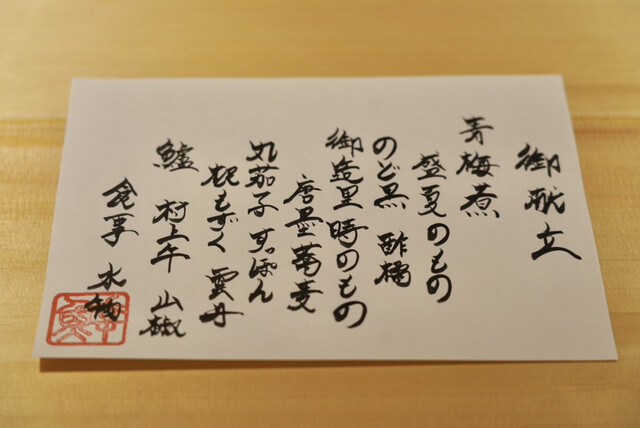 御献立
青梅煮
盛夏のもの
のど黒 酢橘
御造里 時のもの
唐墨蕎麦
丸茄子 すっぽん
枕もずく 雲丹
鱸 村上牛 山椒
食事 水物